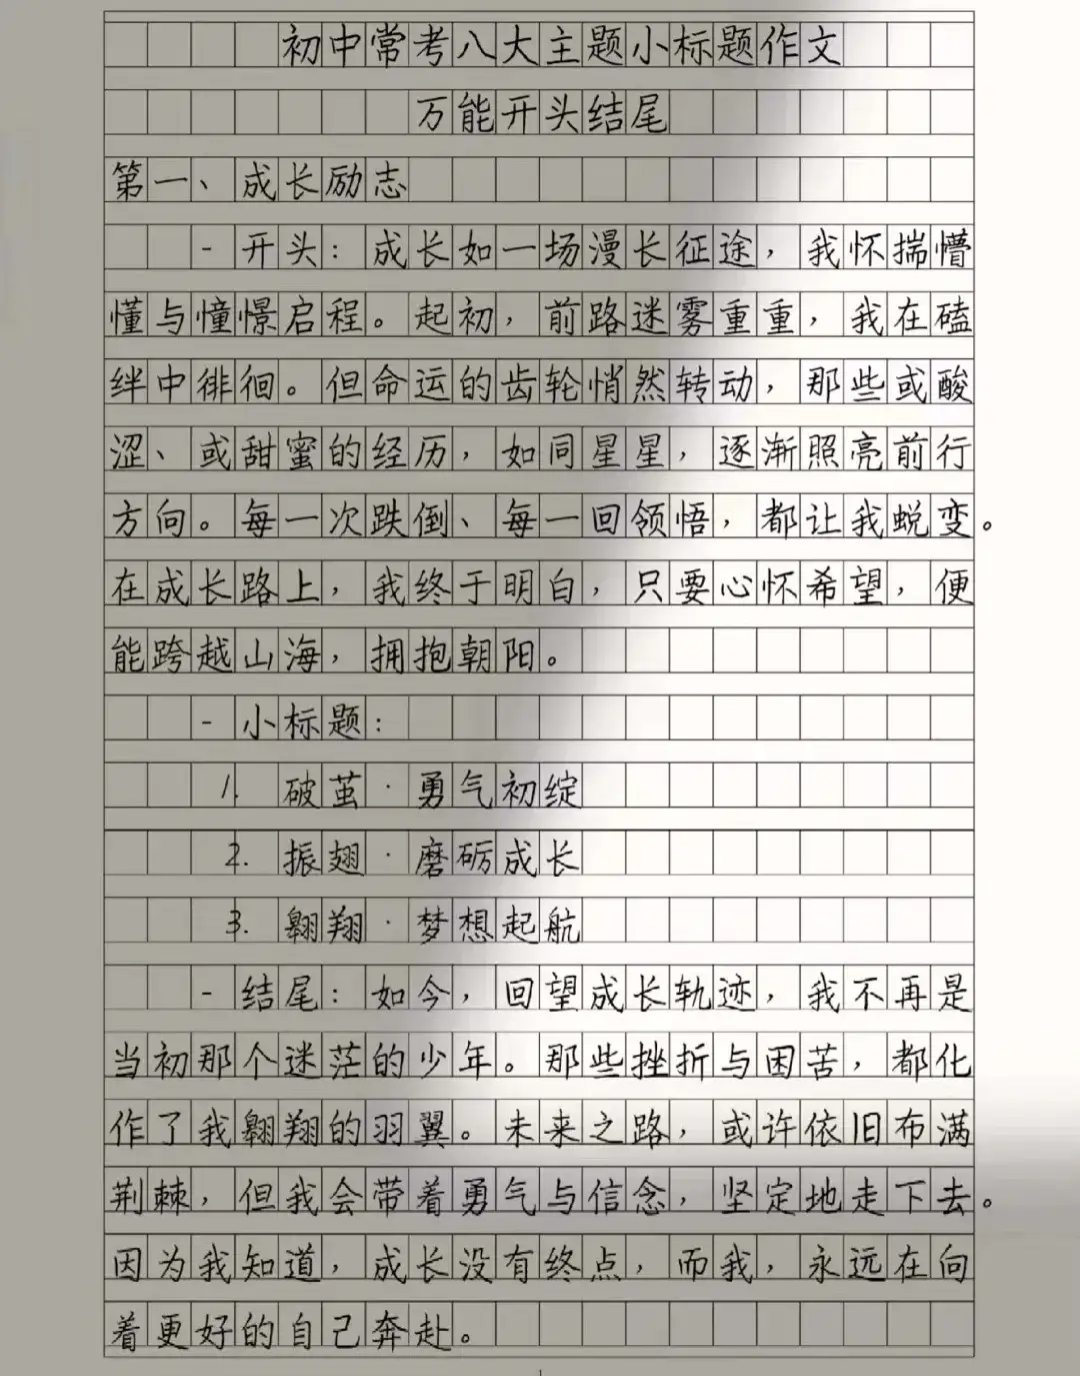 初中常考八大主题小标题作文
万能开头结尾
第一、成长励志
- 开头：成长如一场漫长征途，我怀揣懵
懂与憧憬启程。起初，前路迷雾重重，我在磕
绊中徘徊。但命运的齿轮悄然转动，那些或酸
涩、或甜蜜的经历，如同星星，逐渐照亮前行
方向。每一次跌倒、每一回领悟，都让我蜕变。
在成长路上，我终于明白，只要心怀希望，便
能跨越山海，拥抱朝阳。
- 小标题：
1. 破茧·勇气初绽
2. 振翅·磨砺成长
3. 翱翔·梦想起航
- 结尾：如今，回望成长轨迹，我不再是
当初那个迷茫的少年。那些挫折与困苦，都化
作了我翱翔的羽翼。未来之路，或许依旧布满
荆棘，但我会带着勇气与信念，坚定地走下去。
因为我知道，成长没有终点，而我，永远在向
着更好的自己奔赴。